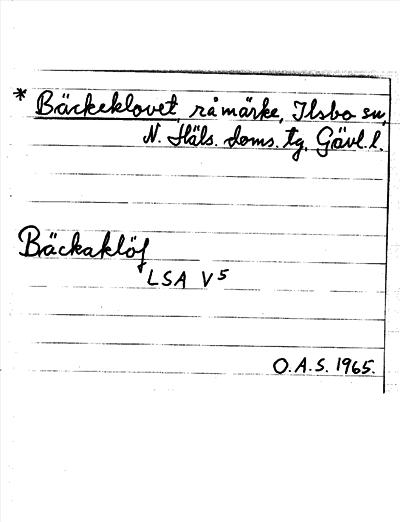 * Bäckeklovet, råmärke, Ilsbo sn,
N. Häls. doms. tg, Gävl. l.
Bäckaklöf
LSA V 5
O.A.S. 1965.